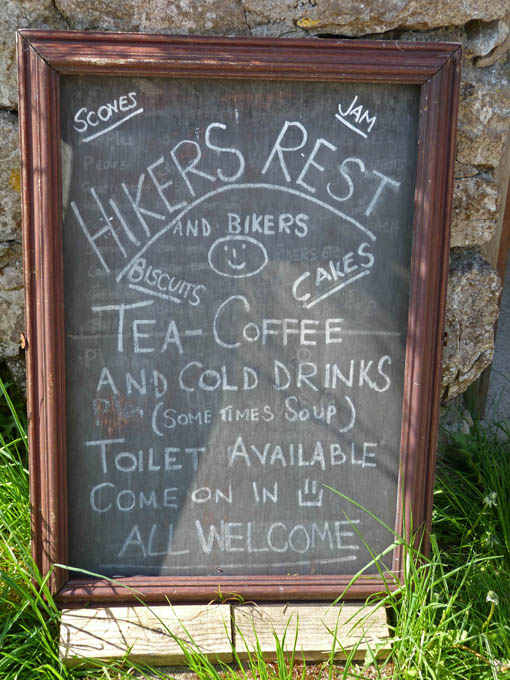 SCONES
JAM
HIKERS REST
AND BIKERS
BISCUITS
CAKES
TEA-COFFEE
AND COLD DRINKS
(SOME TIMES SOUP)
TOILET AVAILABLE
COME ON IN
ALL WELCOME